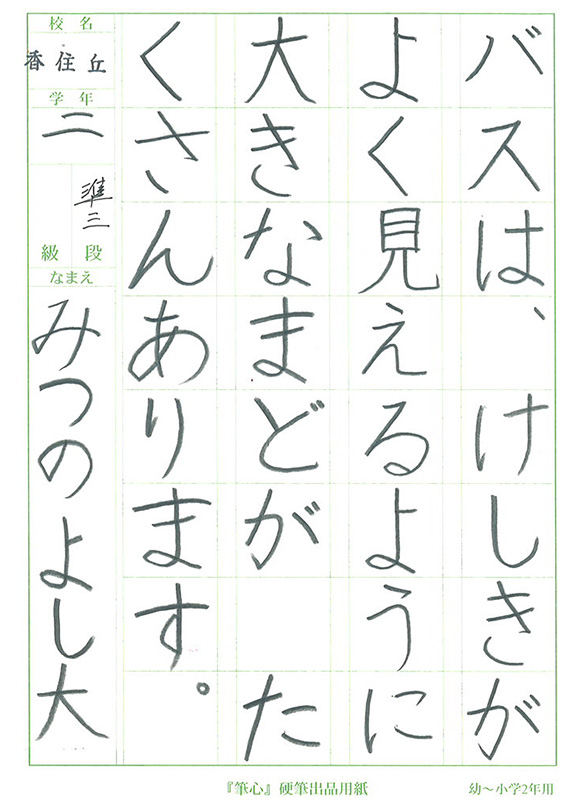 バスは、けしきが
よく見えるように
大きなまどが　た
くさんあります。
校名
香住丘
学年
二
準三
級段
なまえ
みつのよし大
『筆心』硬筆出品用紙
幼〜小学2年用